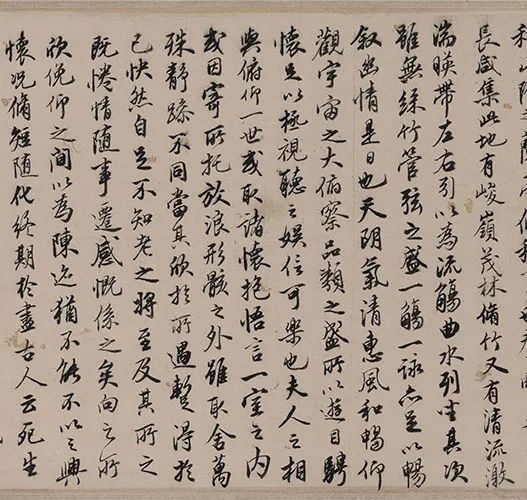 長咸集此地有峻嶺茂林脩竹又有清流激
湍暎帶左右引以為流觴曲水列坐其次
雖無絲竹管弦之盛一觴一詠亦足以暢
叙幽情是日也天朗氣清惠風和暢仰
觀宇宙之大俯察品類之盛所以遊目騁
懷足以極視聽之娛信可樂也夫人之相
與俯仰一世或取諸懷抱悟言一室之內
或因寄所托放浪形骸之外雖取舍萬
殊靜躁不同當其欣於所遇蹔得於
己快然自足不知老之將至及其所之
既惓情隨事遷感慨係之矣向之所
欣俛仰之間以為陳迹猶不能不以之興
懷况脩短隨化終期於盡古人云死生